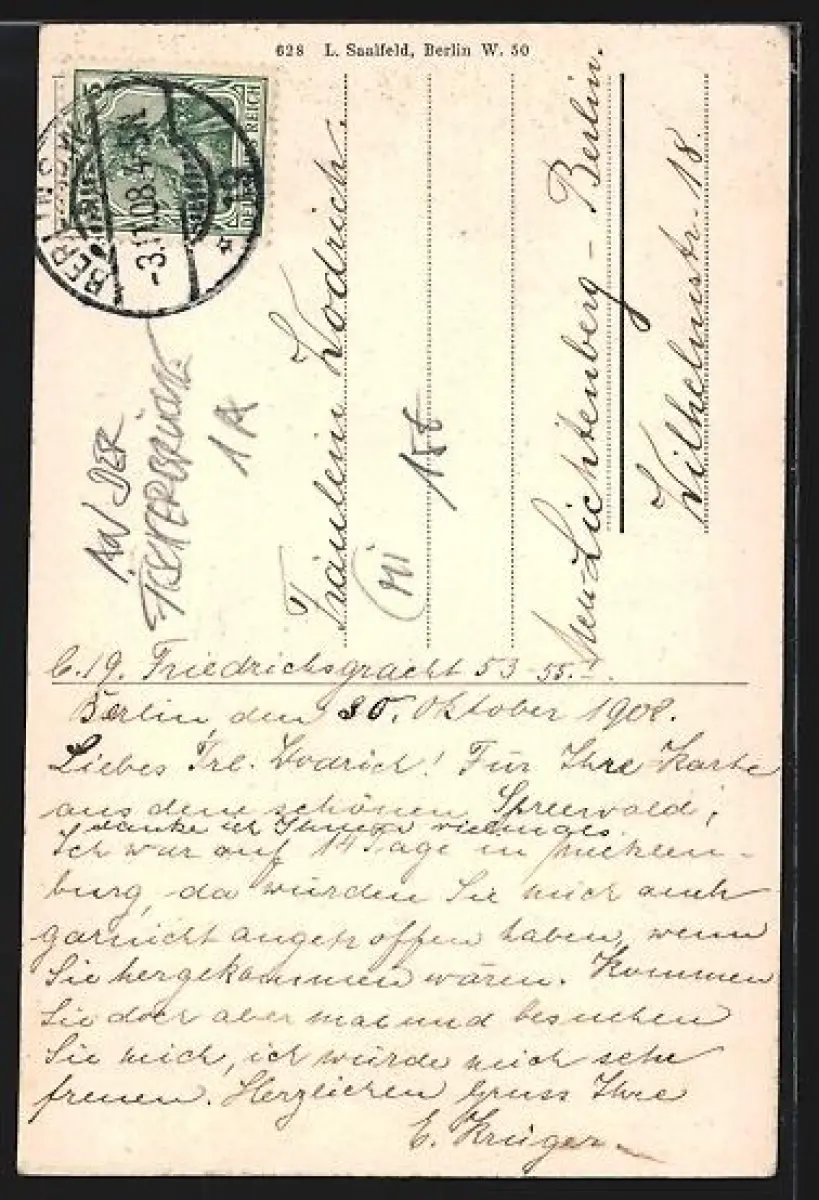 628 L. Saalfeld, Berlin W. 50
DEUTSCHES REICH
BERLIN C
-3.11.08.4-5N.
* 19
AN DER
FISCHERBRÜCKE
1A
Fräulein Wodrich.
Mi
158
Neu-Lichtenberg - Berlin.
Wilhelmstr. 18.
C. 19. Friedrichsgracht 53-55. I.
Berlin, den 30. Oktober 1908.
Liebes Frl. Wodrich! Für Ihre Karte
aus dem schönen Spreewald,
danke ich Ihnen vielmals.
Ich war auf 14 Tage in Mecklen-
burg, da würden Sie mich auch
garnicht angetroffen haben, wenn
Sie hergekommen wären. Kommen
Sie doch aber mal und besuchen
Sie mich, ich würde mich sehr
freuen. Herzlichen Gruss Ihre
C. Krüger.